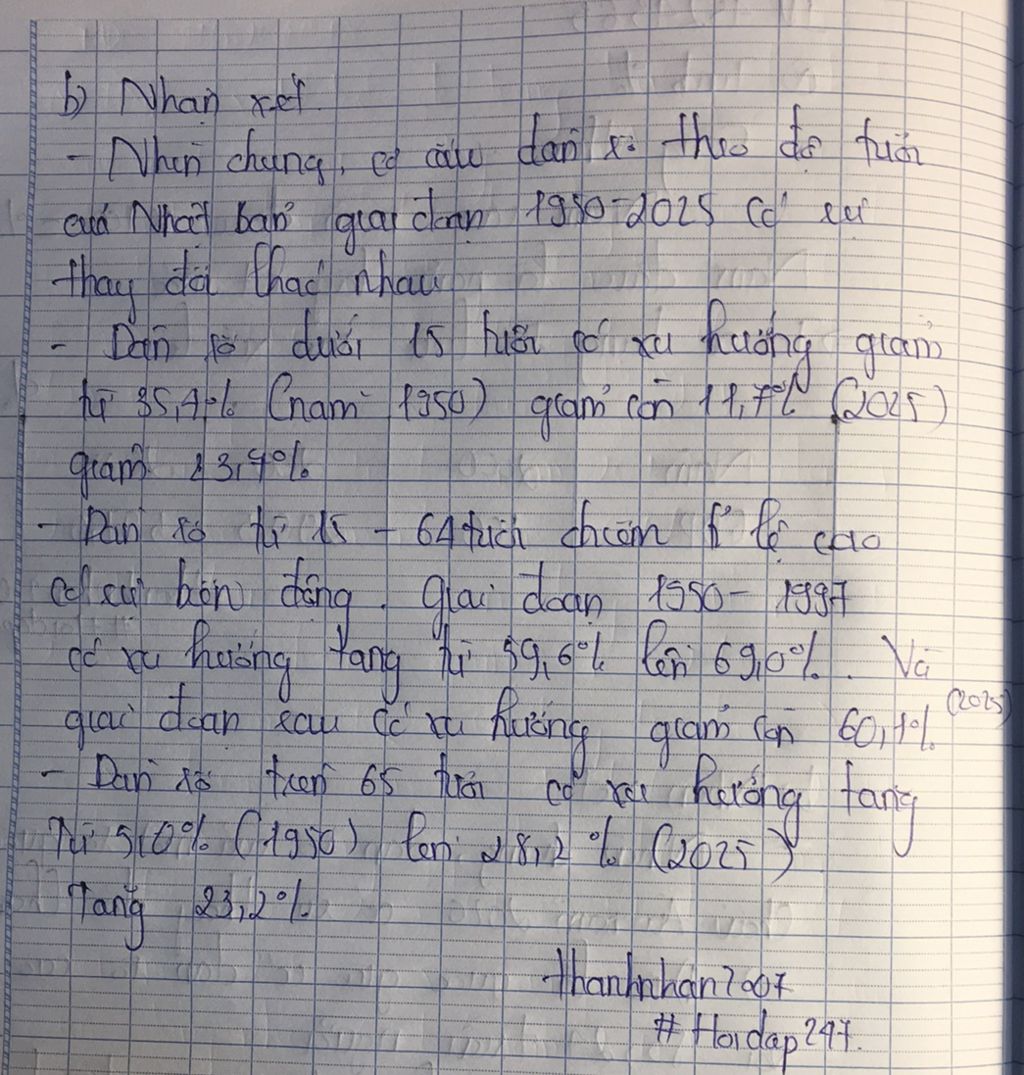 b) Nhận xét.
- Nhìn chung, cơ cấu dân số theo độ tuổi
của Nhật bản giai đoạn 1950-2025 có sự
thay đổi khác nhau
- Dân số dưới 15 tuổi có xu hướng giảm
từ 35,4% (năm 1950) giảm còn 11,7% (2025)
giảm 23,7%
- Dân số từ 15 - 64 tuổi chiếm tỉ lệ cao
có sự biến động. Giai đoạn 1950 - 1997
có xu hướng tăng từ 59,6% lên 69,0%. Và
giai đoạn sau có xu hướng giảm còn 60,1% (2025)
- Dân số trên 65 tuổi có xu hướng tăng
Từ 5,0% (1950) lên 28,2% (2025)
Tăng 23,2%
thanhnhan2007
# Hoidap247.